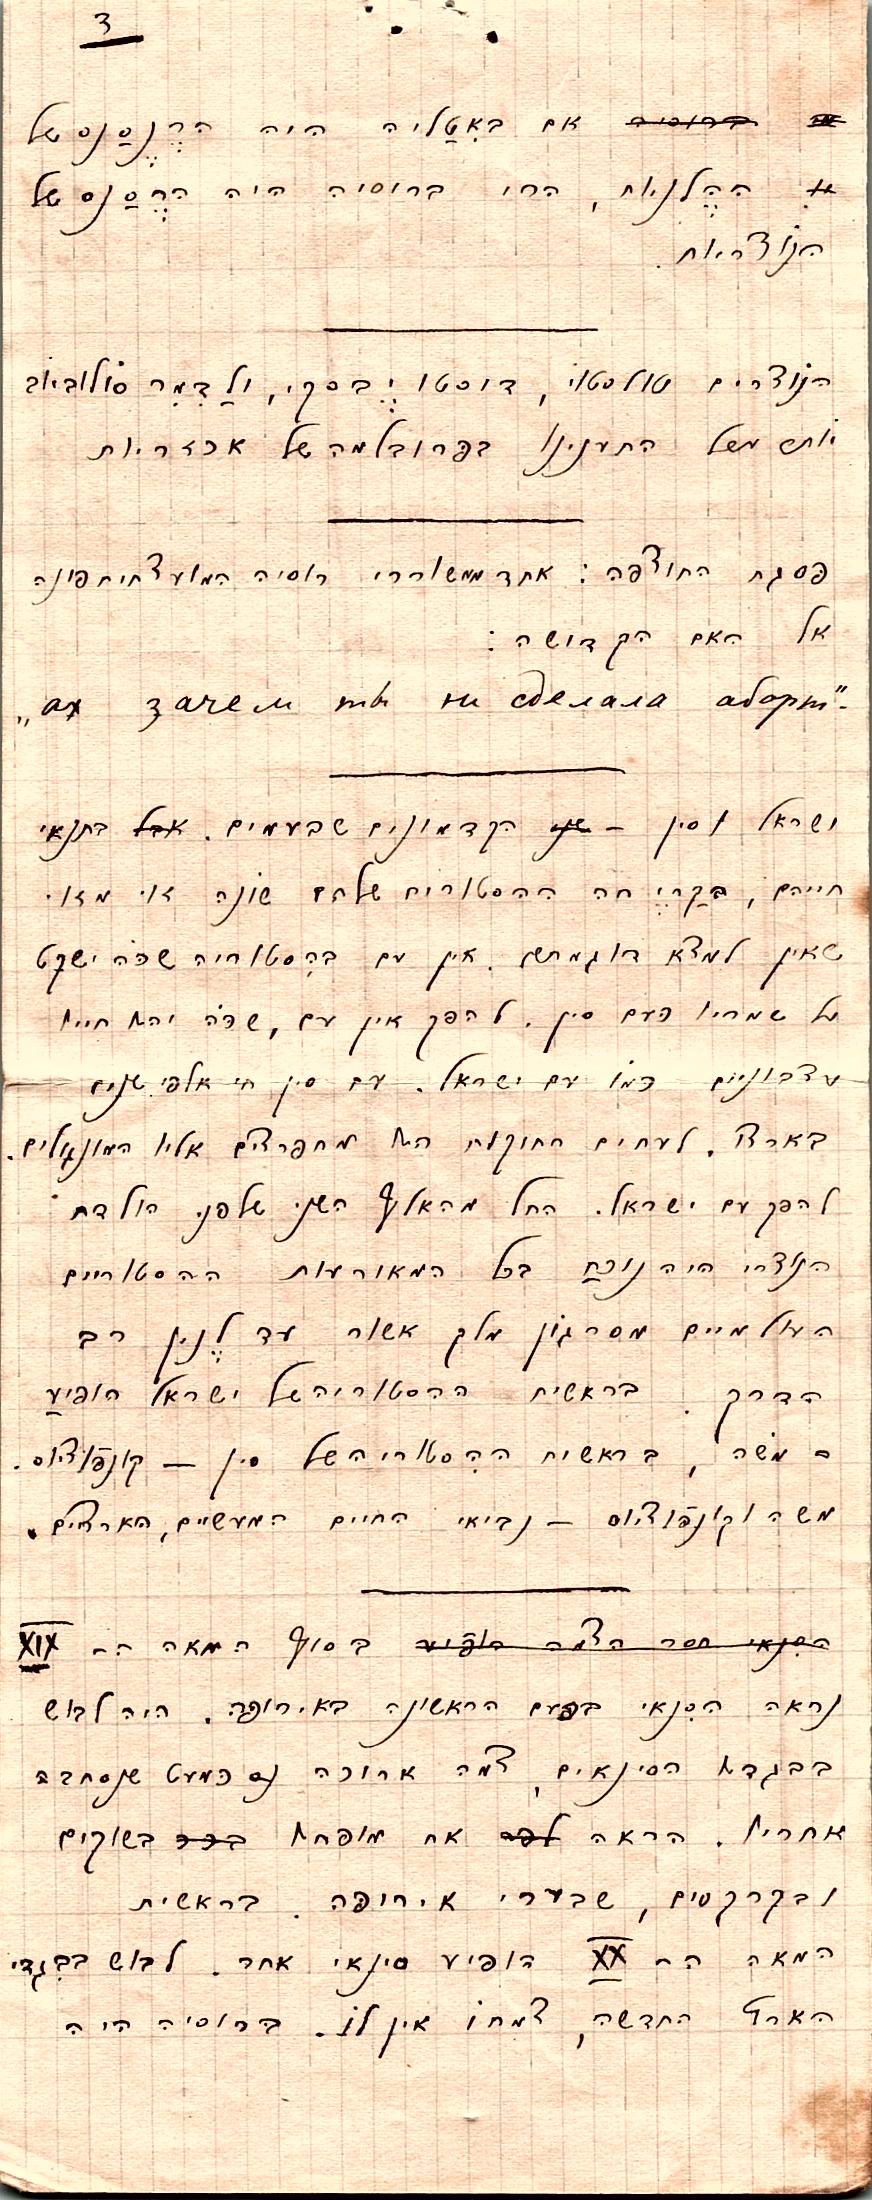 3
אם באִטַליה היה הרֶנֶסַנס של
ההֶלניות, הרי ברוסיה היה הרֶסַנס של
הנוצריות.
הנוצרים טולסטוי, דוסטוייֶבסקי, ולַדִמִר סולוביוב
יותר משל התענינו בפרובלמה של אכזריות
פסגת החוצפה: אחד ממשוררי רוסיה המועצתית פונה
אל האם הקדושה:
„ах зачем ты не сделала аборт"-
ישראל וסין – הקדמונים שבעמים. בתנאי
חייהם, בקַרייֶרה ההסטורית שלהם שונה זוי מזוי
שאין למצא דוגמתשן. אין עם בהִסטוריה שכה ישקט
על שמריו כעם סין. להפך אין עם, שכה יהיו חייו
עצבוניים כמו עם ישראל. עם סין חי אלפי שנים
בארצו. לעתים רחוקות היו מתפרצים אליו המונגולים.
להפך עם ישראל. החל מהאלף השני שלפני הולדת
הנוצרי היה נוכַח בכל המאורעות ההסטוריים
העולמיים מסרגון מלך אשור עד לֶנין רב
הדרך. בראשית ההסטוריה של ישראל הופיעַ
משה, בראשית ההִסטוריה של סין – קונפוציוס.
משה וקונפוציוס – נביאי החיים המעשיים, הארציים.
הסִנאי חסר הצמה הופיע בסוף המאה ה- XIX
נראה הסִנאי בפעם הראשונה באירופה. היה לבוש
בבגדיו הסינאים, צמה ארוכה גם כמעט שנסחבה
אחריו. הראה את מופתיו בשוקים
ובקרקסים, שבערי אירופה. בראשית
המאה ה- XX הופיע סינאי אחר. לבוש בבִגדי
הארץ החדשה, צמתו אין לו. ברוסיה היה